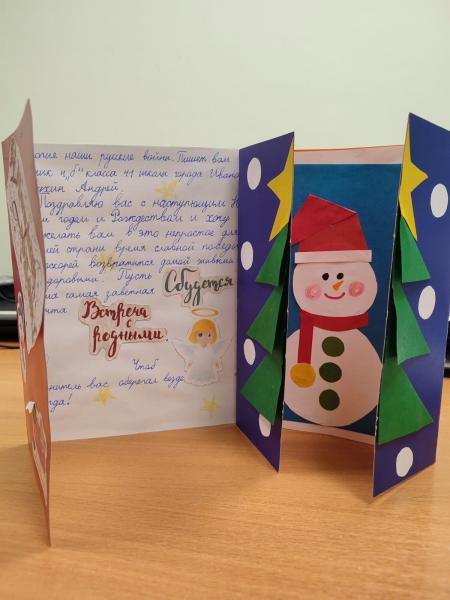 наши русские войны. Пишет вам
ник 4 „б" класса 41 школы города
Андрей.
Поздравляю вас с наступающим
годом и Рождеством и хочу
желать вам в это непростое для
страны время славной победы
скорей возвратится домой живыми
здоровыми. Пусть
самая заветная
Сбудется
Встреча
с
родными.
Чтоб
вас оберегал везде